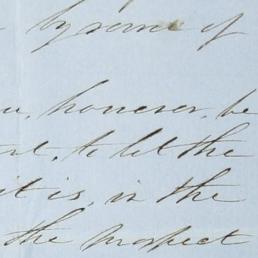 by some of
however, be
to let the
it is, in the
the prospect